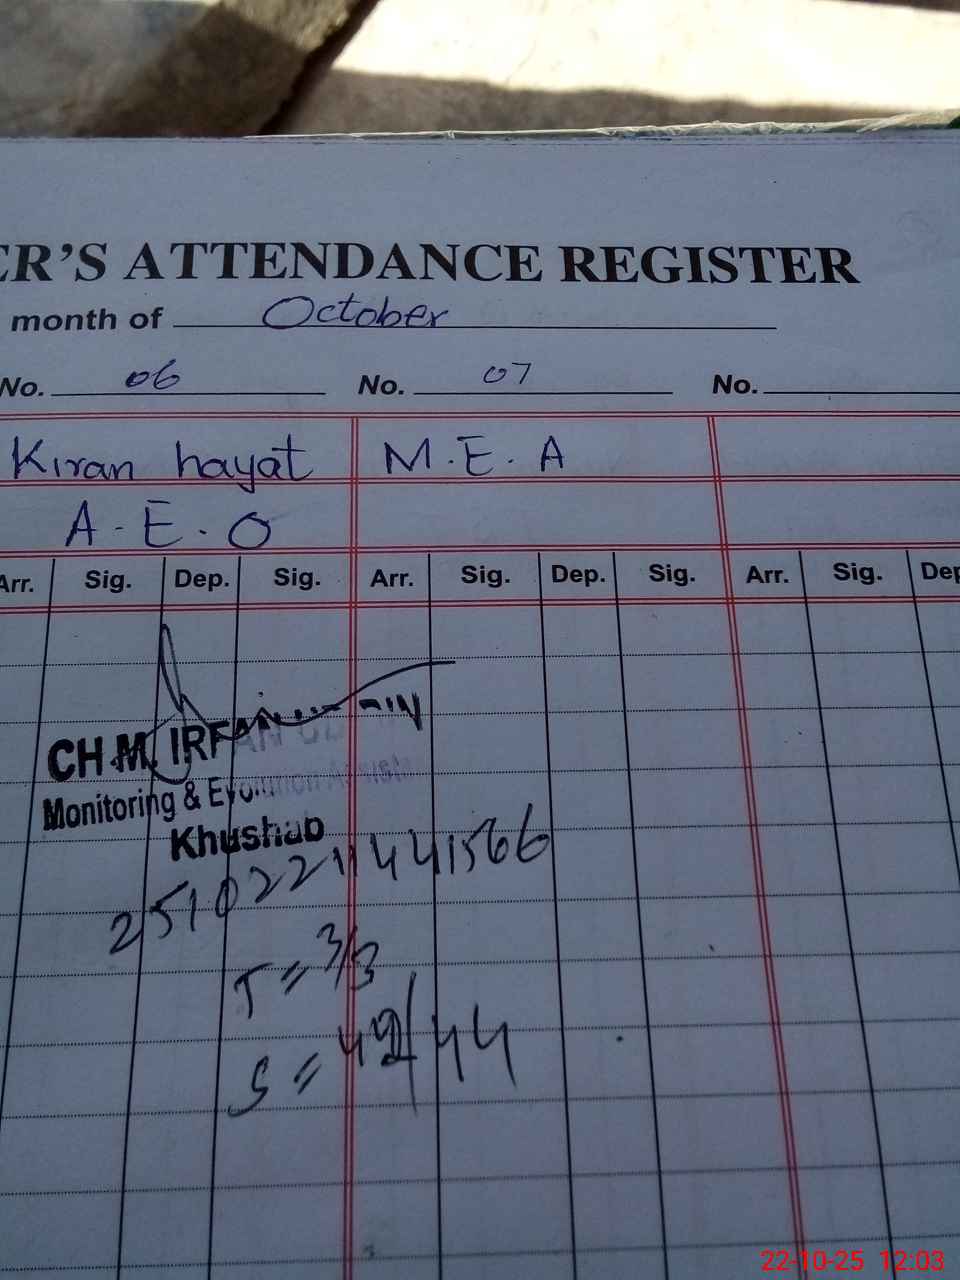 ER'S ATTENDANCE REGISTER
month of October
No. 06 No. 07 No.
Kiran hayat M.E.A
A.E.O
Arr. Sig. Dep. Sig. Arr. Sig. Dep. Sig. Arr. Sig. Dep
CH M. IRFAN UD DIN
Monitoring & Evolution Assista
Khushab
2510221144 1566
T = 3/3
S = 42/44
22-10-25 12:03